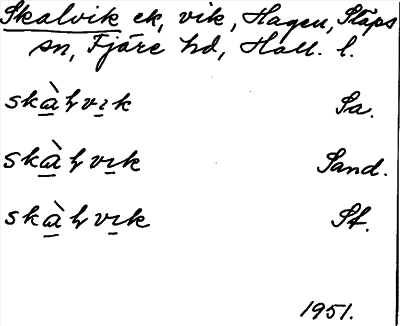 Skalvik ek, vik, Hagen, Släps
sn, Fjäre hd, Hall. l.
skàⱡvɪk Sa.
skàⱡvɪk Sand.
skàⱡvɪk Sf.
1951.